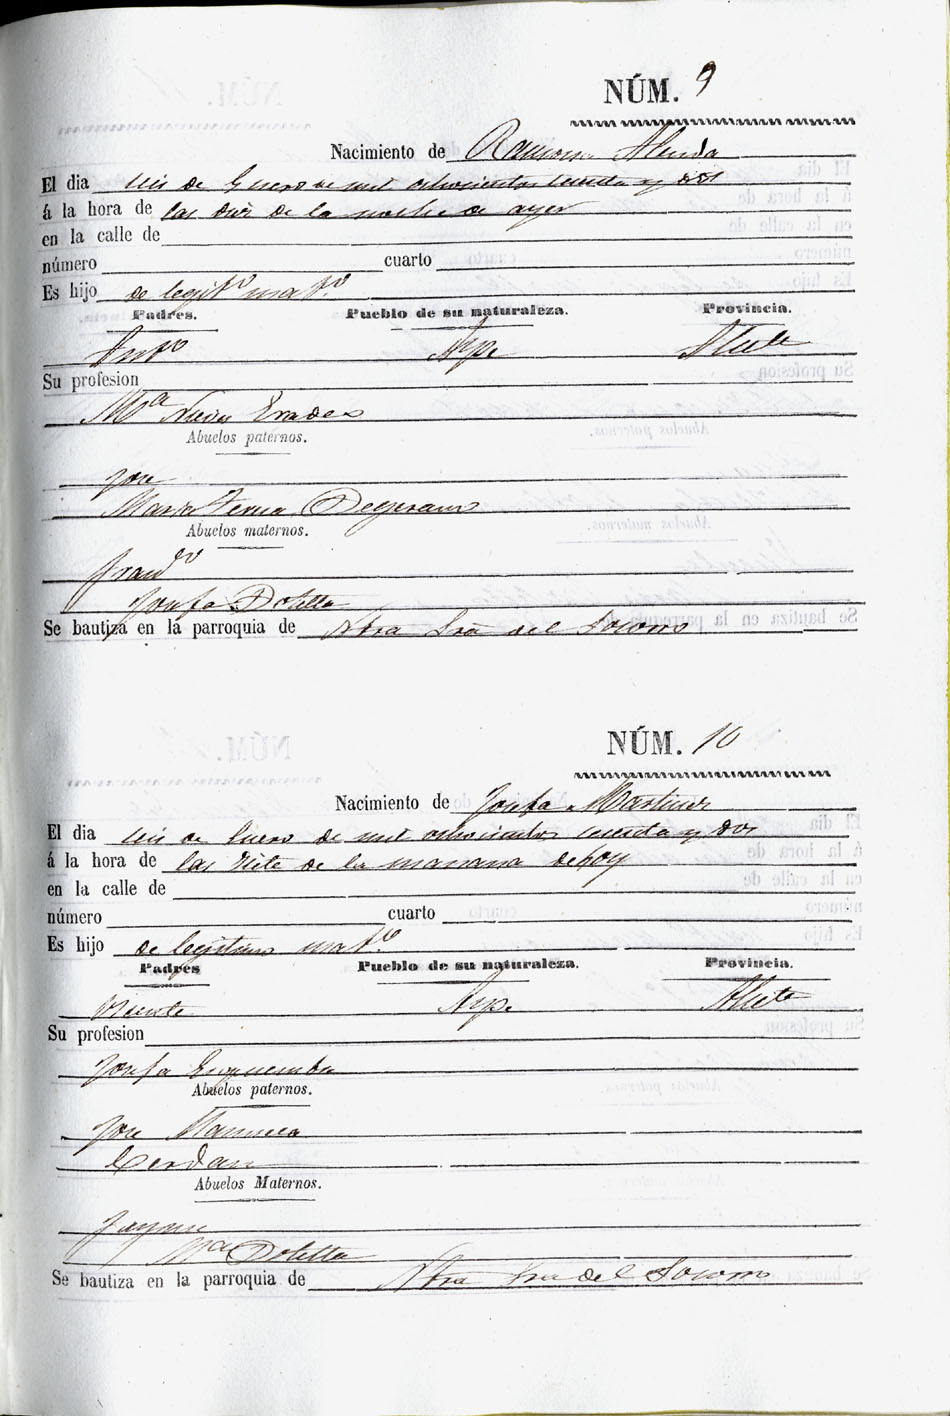 NÚM. 9
Nacimiento de Ramona Alenda
El dia seis de Enero de mil ochocientos sesenta y dos
á la hora de las dos de la noche de ayer
en la calle de
número cuarto
Es hijo de legitº matº
Padres. Pueblo de su naturaleza. Provincia.
Antº Aspe Alicte
Su profesion
Mª Nieves Erades
Abuelos paternos.
Jose
Maria Teresa
Abuelos maternos.
Francº
Josefa Botella
Se bautiza en la parroquia de Ntra Sra del Socorro
NÚM. 10
Nacimiento de Josefa Martinez
El dia seis de Enero de mil ochocientos sesenta y dos
á la hora de las siete de la manana de hoy
en la calle de
número cuarto
Es hijo de legitimo matº
Padres Pueblo de su naturaleza. Provincia.
Vicente Aspe Alicte
Su profesion
Josefa
Abuelos paternos.
Jose Manuela
Cerdan
Abuelos Maternos.
Jayme
Mª Botella
Se bautiza en la parroquia de Ntra Sra del Socorro